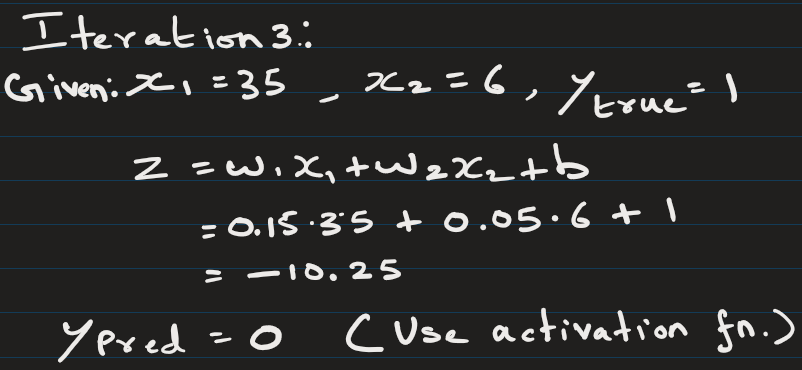 Iteration 3:
Given: x₁ = 35, x₂ = 6, y_true = 1
z = w₁x₁ + w₂x₂ + b
= 0.15·35 + 0.05·6 + 1
= -10.25
y_pred = 0 (Use activation fn.)